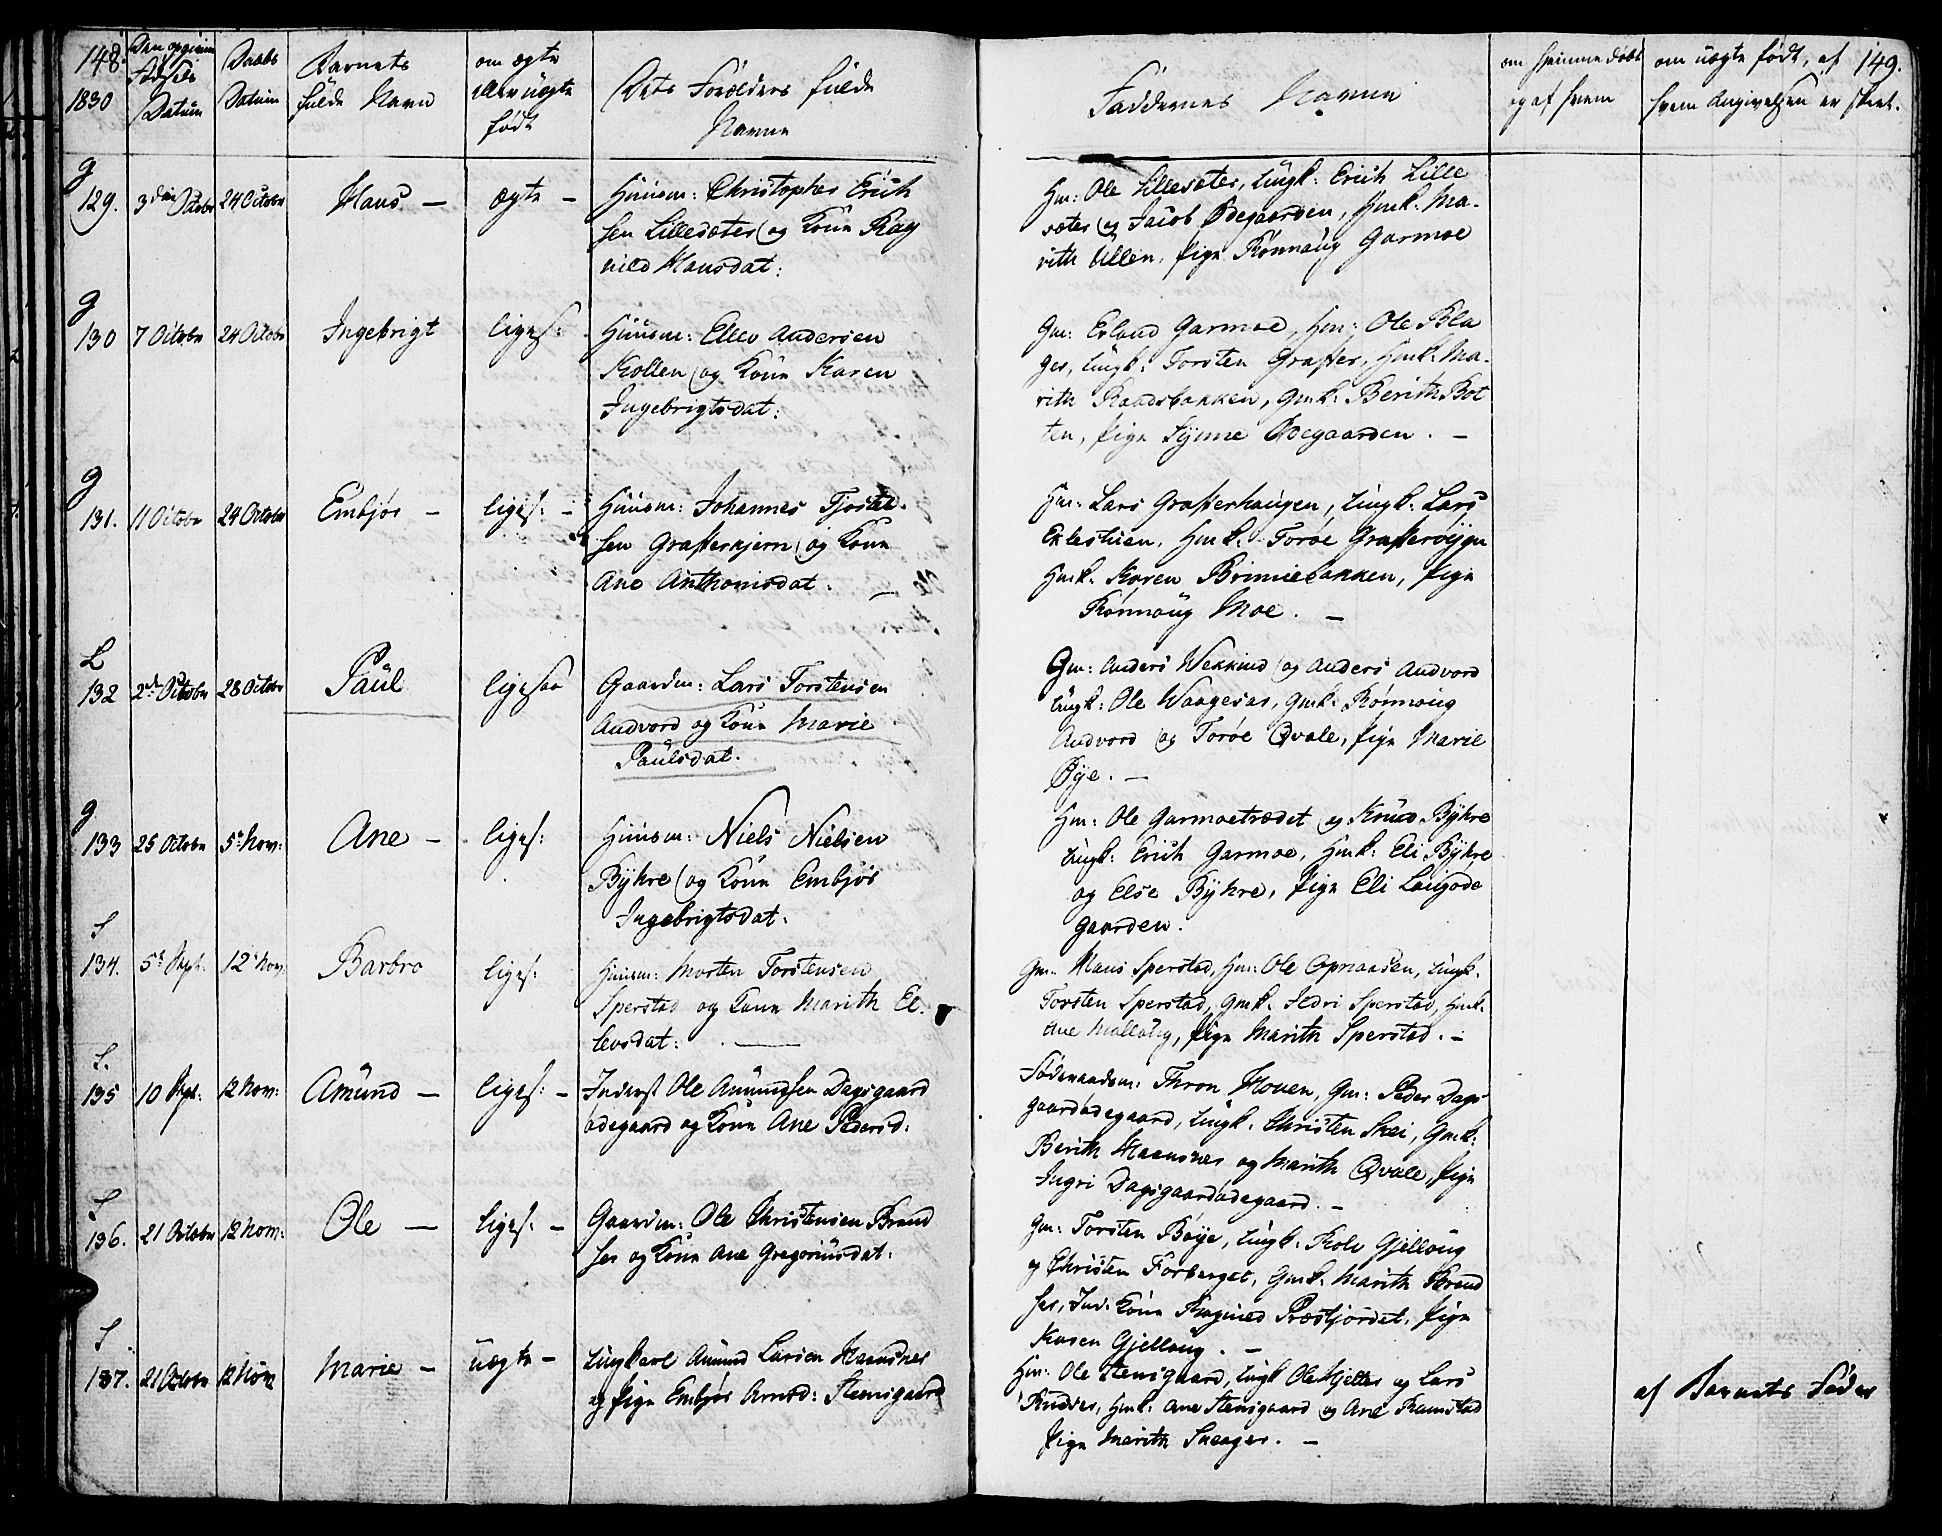 148. Den opgivne Fødsels Datum
1830
Daabs Datum
Barnets fulde Navn
om ægte eller uægte født
Dets Forældres fulde Navne
Faddernes Navne
om hjemmedøbt og af hvem
om uægte født, af hvem Angivelsen er skeet.
149.
g
129. 3die Octobr 24 Octobr Hans — ægte —
Huusm: Christopher Erich
sen Lillesæter og Kone Rag
nild Hansdat:
Hm: Ole Lillesæter, Ungk: Erich Lille
sæter og Jacob Ødegaarden, Hmk: Ma-
rith Ullen, Pige Rønnaug Garmoe
g
130 7 Octobr 24 Octobr Ingebrigt liges:
Huusm: Ellev Andersen
Kollen og Kone Karen
Ingebrigtsdat:
Gm: Erland Garmoe, Hm: Ole Bla
ger, Ungk: Torsten Graffer, Hmk: Ma-
rith Raadsbakken, Gmk: Berith Bot
ten, Pige Synne Ødegaarden. —
g
131. 11 Octobr 24 Octobr Embjør — liges: —
Huusm: Johannes Tjostel-
sen Grafferkjern og Kone
Ane Anthonisdat. —
Hm: Lars Grafferhaugen, Ungk: Lars
Eklestuen, Hmk: Torøe Grafferøygn
Hmk. Karen Brimiebakken, Pige
Rønnaug Moe. —
L
132 2den Octobr 28 Octobr Paul ligesaa
Gaardm: Lars Torstensen
Andvord og Kone Marie
Paulsdat.
Gm: Anders Wekkind og Anders Andvord
Ungk: Ole Waagesar, Gmk: Rønnoug
Andvord og Torøe Qvale, Pige Marie
Bye. —
g
133 25 Octobr 5te Nov: Ane — liges:
Huusm: Niels Nielsen
Byhre og Kone Embjør
Ingebrigtsdat:
Hm: Ole Garmoetrædet og Knud Byhre
Ungk: Erich Garmoe, Hmk: Eli Byhre
og Else Byhre, Pige Eli
gaarden.
L
134. 5te Sept. 12te Nov. Barbro liges:
Huusm: Morten Torstensen
Sperstad og Kone Marith El-
levsdat: —
Gm: Hans Sperstad, Hm: Ole Opnaasen, Ungk.
Torsten Sperstad, Gmk. Sedri Sperstad, Hmk.
Ane, Pige Marith Sperstad. —
L.
135 10 Sept. 12 Nov: Amund — liges: —
Inderst Ole Amundsen Dagsgaard
ødegaard og Kone Ane Pedersd:
Føderaadsm: Thron Hoven, Gm: Peder Dags
gaardødegaard, Ungk. Christen Skei, Gmk:
Berith Haansnes og Marith Qvale, Pige
Ingri Dagsgaardødegaard. —
L
136. 21 Octobr 12 Nov: Ole — liges: —
Gaardm: Ole Christensen Brand
ser og Kone Ane Gregoriusdat:
Gm: Torsten Bøye, Ungk: Rolv Gjelloug
og Christen Forberget, Gmk: Marith Brand
ser, Ind. Kone Ragnild Præstjordet, Pige
Karen Gjelloug. —
L
137. 21 Octobr 12 Nov Marie — uægte —
Ungkarl Amund Larsen Haansnes
og Pige Embjør Arnsd: Stensgaard
Hm: Ole Stensgaard, Ungk Ole Hjelter og Lars
Rudser, Hmk: Ane Stensgaard og Ane Ramstad
Pige Marith Snerger. —
af Barnets Fader